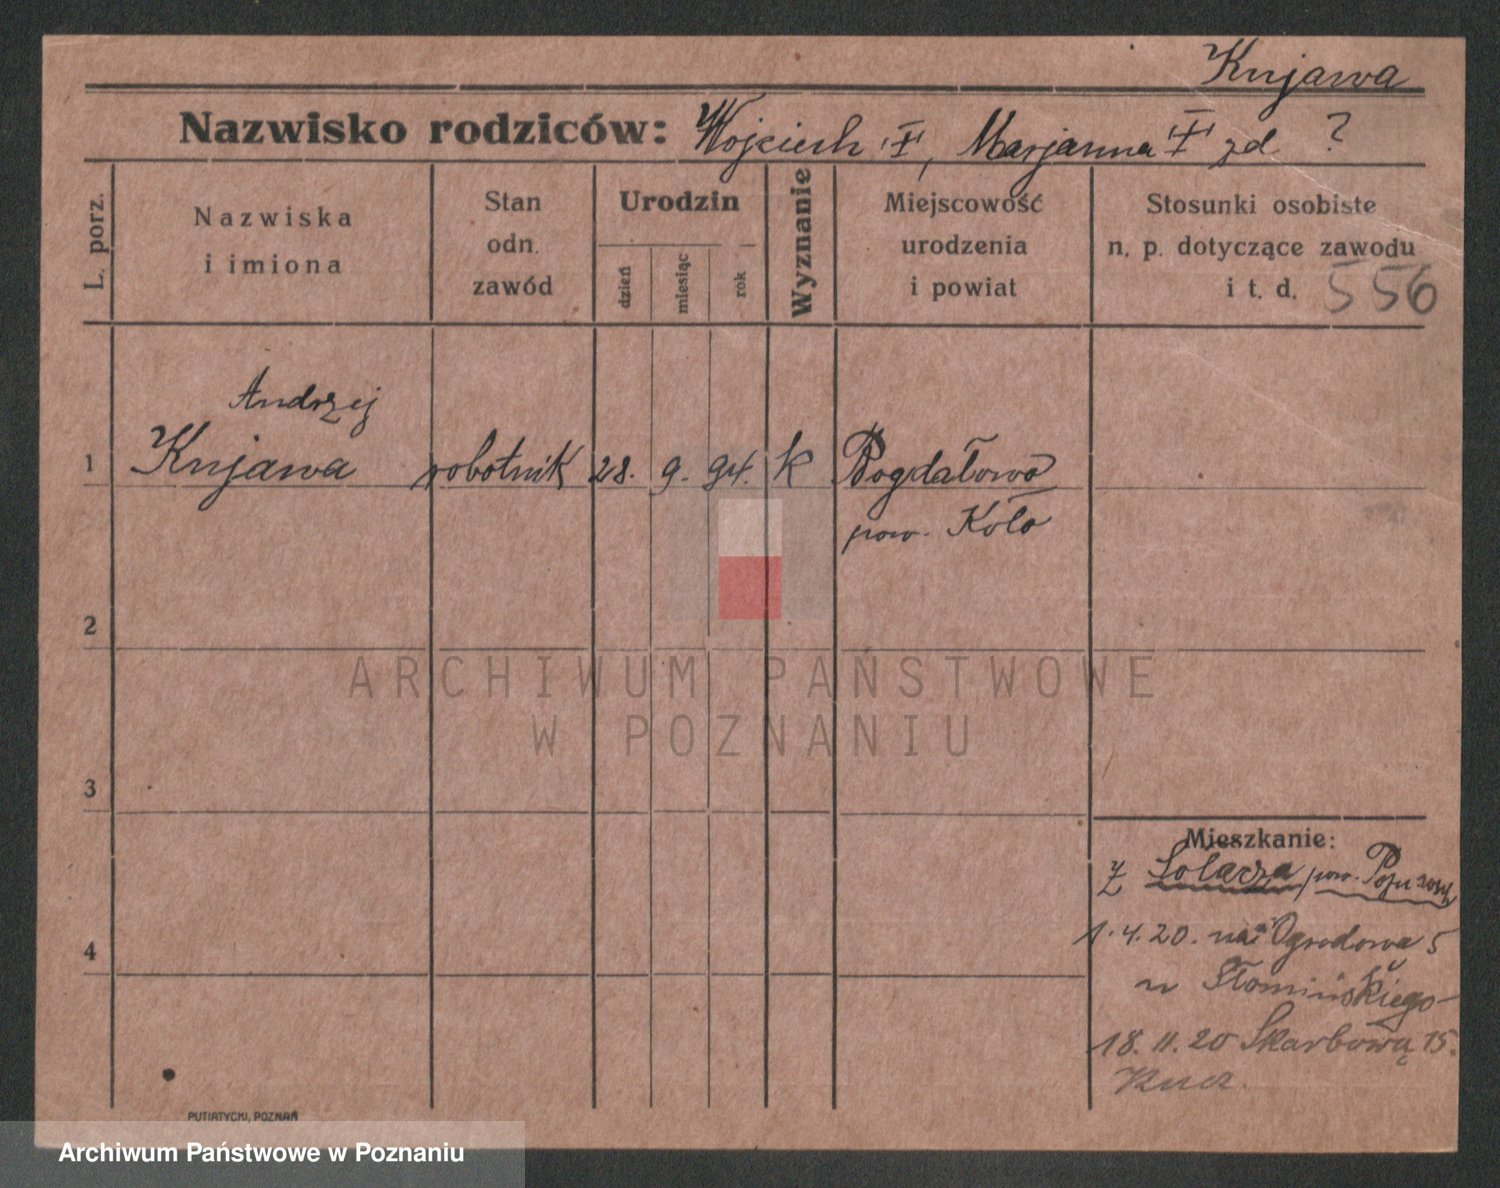 Kujawa
Nazwisko rodziców: Wojciech †, Marjanna † zd ?
L. porz.
Nazwiska
i imiona
Stan
odn.
zawód
Urodzin
dzień
miesiąc
rok
Wyznanie
Miejscowość
urodzenia
i powiat
Stosunki osobiste
n. p. dotyczące zawodu
i t. d. 556
Andrzej
1 Kujawa robotnik 28. 9. 94. k Bogdałowo
pow. Koło
2
ARCHIWUM PAŃSTWOWE
W POZNANIU
3
Mieszkanie:
z Sołacza, pow. Pozn
4
1.4.20. na Ogrodowa 5
u Słomińskiego
18.11.20 Skarbową 15.
PUTIATYCKI, POZNAŃ
Archiwum Państwowe w Poznaniu